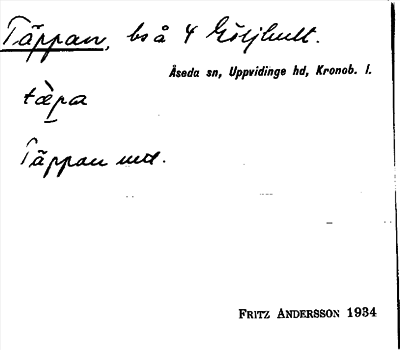 Täppan, bs å 4 Göljhult.
Åseda sn, Uppvidinge hd, Kronob. l.
tæ̀pa
Täppan
FRITZ ANDERSSON 1934